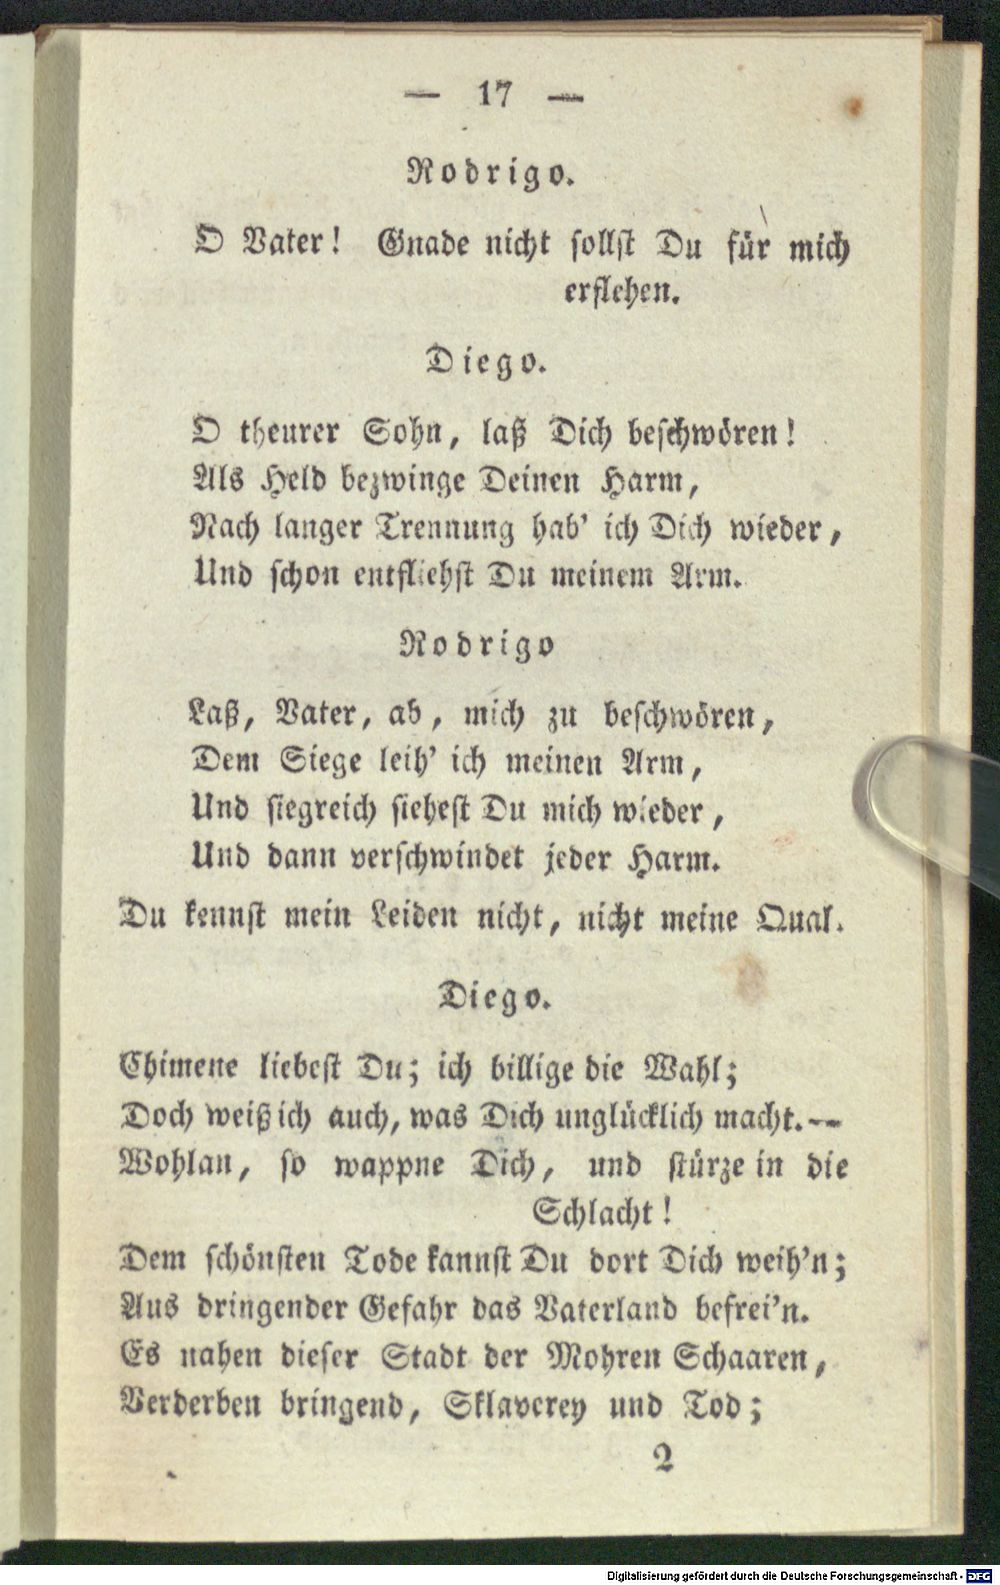 — 17 —
Rodrigo.
O Vater! Gnade nicht sollst Du für mich
erflehen.
Diego.
O theurer Sohn, laß Dich beschwören!
Als Held bezwinge Deinen Harm,
Nach langer Trennung hab' ich Dich wieder,
Und schon entfliehst Du meinem Arm.
Rodrigo
Laß, Vater, ab, mich zu beschwören,
Dem Siege leih' ich meinen Arm,
Und siegreich siehest Du mich wieder,
Und dann verschwindet jeder Harm.
Du kennst mein Leiden nicht, nicht meine Qual.
Diego.
Chimene liebest Du; ich billige die Wahl;
Doch weiß ich auch, was Dich unglücklich macht.—
Wohlan, so wappne Dich, und stürze in die
Schlacht!
Dem schönsten Tode kannst Du dort Dich weih'n;
Aus dringender Gefahr das Vaterland befrei'n.
Es nahen dieser Stadt der Mohren Schaaren,
Verderben bringend, Sklaverey und Tod;
2
Digitalisierung gefördert durch die Deutsche Forschungsgemeinschaft - DFG